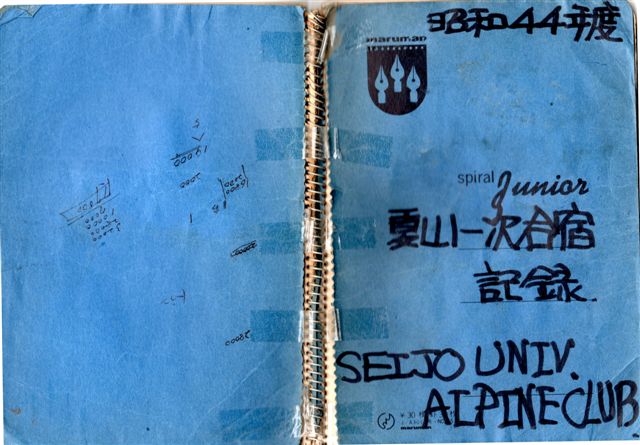 昭和44年度
maruman
spiral Junior
夏山一次合宿
記録.
SEIJO UNIV.
ALPINE CLUB
¥30
maruman
18000
2000
28000